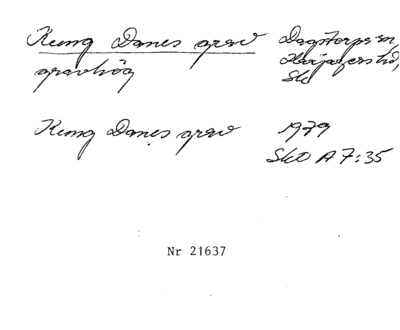 Kung Danes grav Dagstorps sn,
gravhög Harjagers hd,
Sk
Kung Danes grav 1979
SkO A7:35
Nr 21637